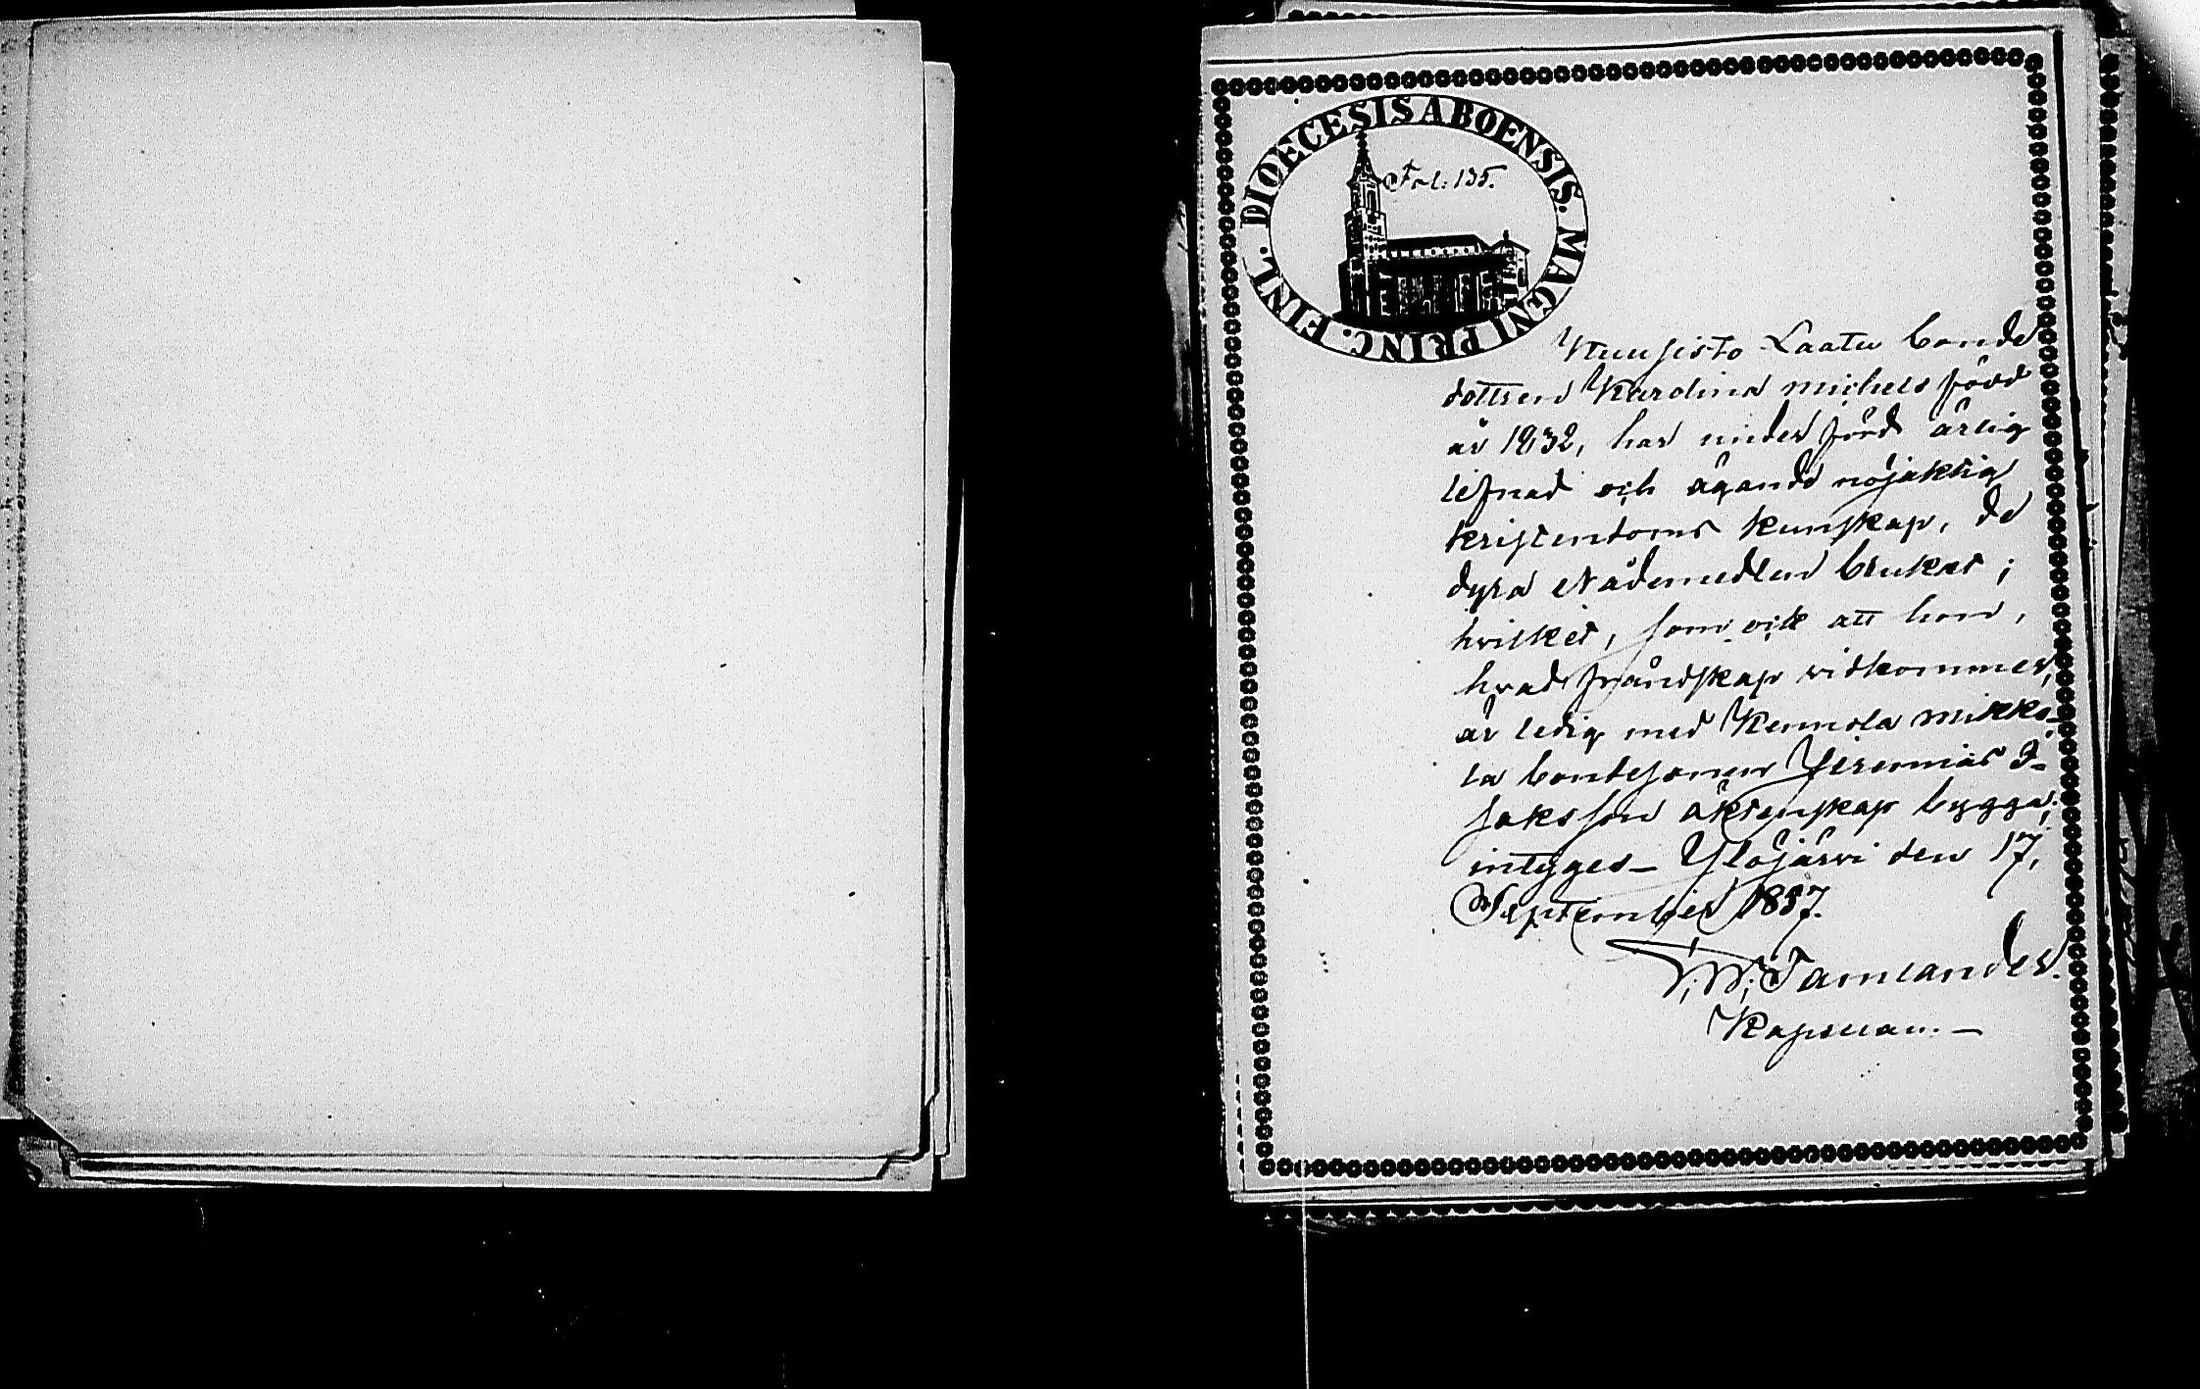 DIOECESIS ABOENSIS. MAGNI PRINC. FINL.
Fol: 135.
Kuusisto Laatu bonde
dottren Karolina michels född
år 1832, har under förd ärlig
lefnad och ägande nöjaktig
kristendoms kunskap, de
dyra Nådemedlen brukat;
hvilket, som ock att hon,
hvad frändskap vidkommer,
är ledig med Kennola Mikko-
la bondesonen Jeremias I-
saksson äktenskap bygga,
intyges – Ylöjärvi den 17,
September 1857.
Tamlander.
Kapellan. –